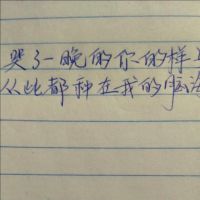 哭了一晚的你的样
从此都种在我的脑海